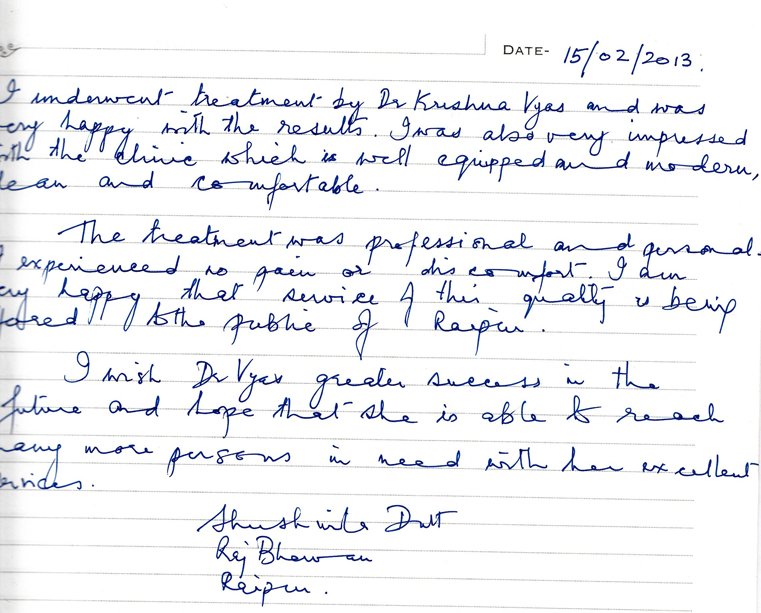 DATE- 15/02/2013.
I underwent treatment by Dr Krishna Vyas and was
ery happy with the results. I was also very impressed
ith the clinic which is well equipped and modern,
lean and comfortable.
The treatment was professional and personal.
I experienced no pain or discomfort. I am
ery happy that service of this quality is being
fered to the public of Raipur.
I wish Dr Vyas greater success in the
future and hope that she is able to reach
many more persons in need with her excellent
ervices.
Shushmita Dutt
Raj Bhawan
Raipur.